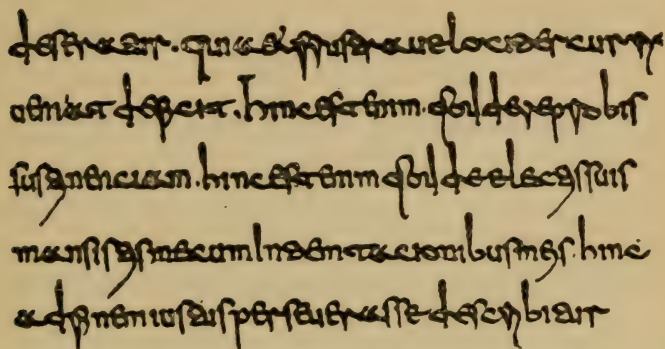 destruatur. quia
ueniat deficit. hinc est enim quod de reprobis
sustinentiam. hinc est enim quod de electis suis
mansistis mecum In temtationibus meis. hinc
ad finem iustus perseuerasse describitur